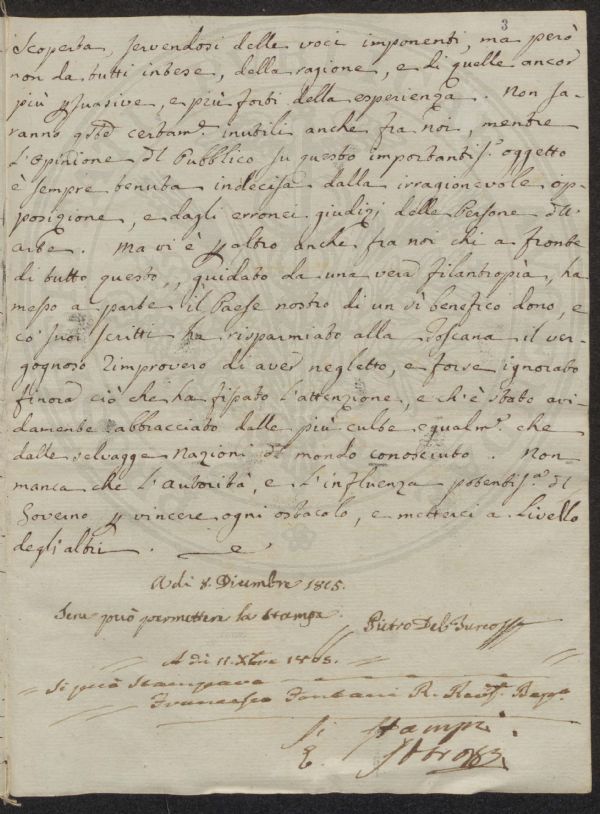 3
Scoperta, servendosi delle voci imponenti, ma però
non da tutti intese, della ragione, e di quelle ancor
più psuasive, e più forti della esperienza. Non sa-
ranno certam.e inutili anche fra noi, mentre
l'Opinione dl Pubblico su questo importantiss.o oggetto
è sempre tenuta indecisa dalla irragionevole op-
posizione, e dagli erronei giudizj delle Persone dll'
arte. Ma vi è p altro anche fra noi chi a fronte
di tutto questo, guidato da una vera filantropìa, ha
messo a parte il Paese nostro di un sì benefico dono, e
co' suoi scritti ha risparmiato alla Toscana il ver-
gognoso rimprovero di aver negletto, e forse ignorato
finora ciò che ha fissato l'attenzione, e ch'è stato avi-
damente abbracciato dalle più culte egualm.e che
dalle selvagge Nazioni dl mondo conosciuto. Non
manca che l'Autorità, e l'influenza potentiss.a dl
Governo p vincere ogni ostacolo, e metterci a Livello
degli altri.
A dì 8. Dicembre 1805.
Se ne può permettere la stampa.
Pietro Del Turco
A dì 11. Xbre 1805.
Si può Stampare
Francesco Fontani R.
Si Stampi